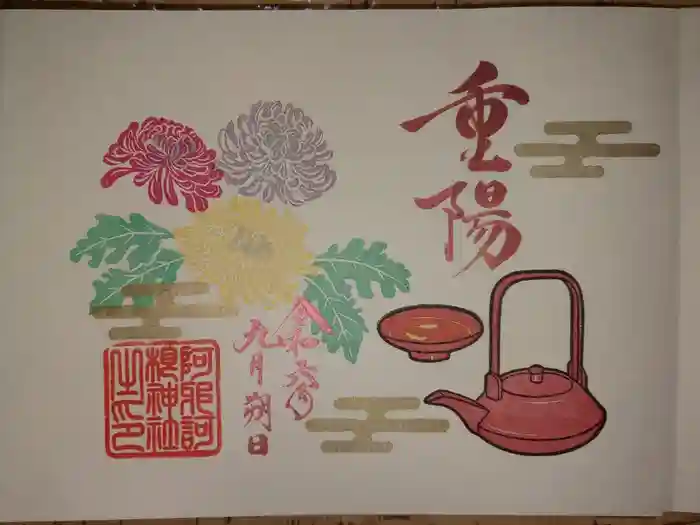 重陽
令和六年
九月朔日
阿邪訶
根神社
之印